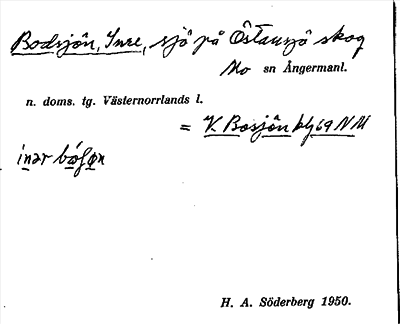 Bodsjön, Inre, sjö på Östansjö skog
Mo sn Ångermanl.
n. doms. tg. Västernorrlands l.
= V. Bosjön blj 69 NM
H. A. Söderberg 1950.